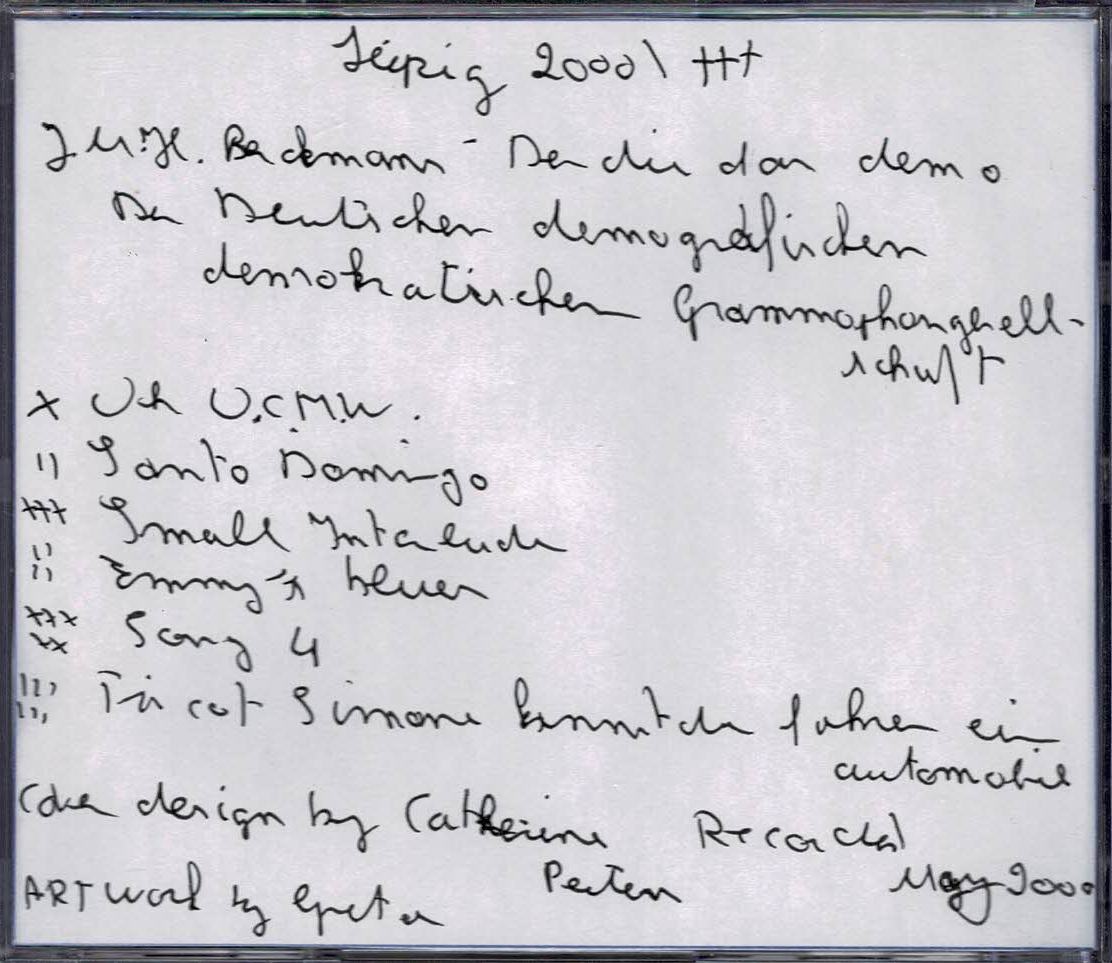 Leipzig 2000 \ +++
J.M.H. Backmann - Den die dan demo
Den Deutschen demografischen
demokratischen Grammophongesell-
schaft
x Och O.C.M.W.
)) Santo Domingo
+++ Small Interlude
Emmy's bleuen
Song 4
Tricot Simone kunnt du fahren ein
automobil
design by Catherine Recorded
Peeters May 2000
ARTwork by Greta